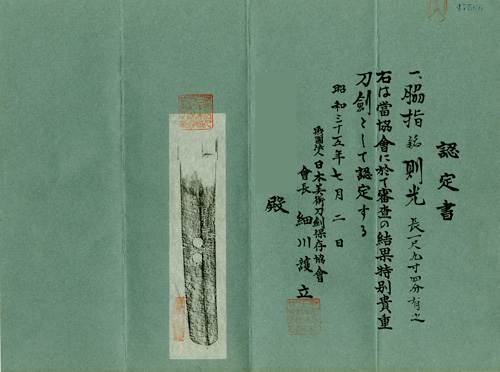 認定書
一、脇指 銘 則光 長一尺九寸四分有之
右は當協會に於て審査の結果特別貴重
刀劍として認定する
昭和三十五年七月二日
財團法人日本美術刀劍保存協會
會長 細川護立
殿